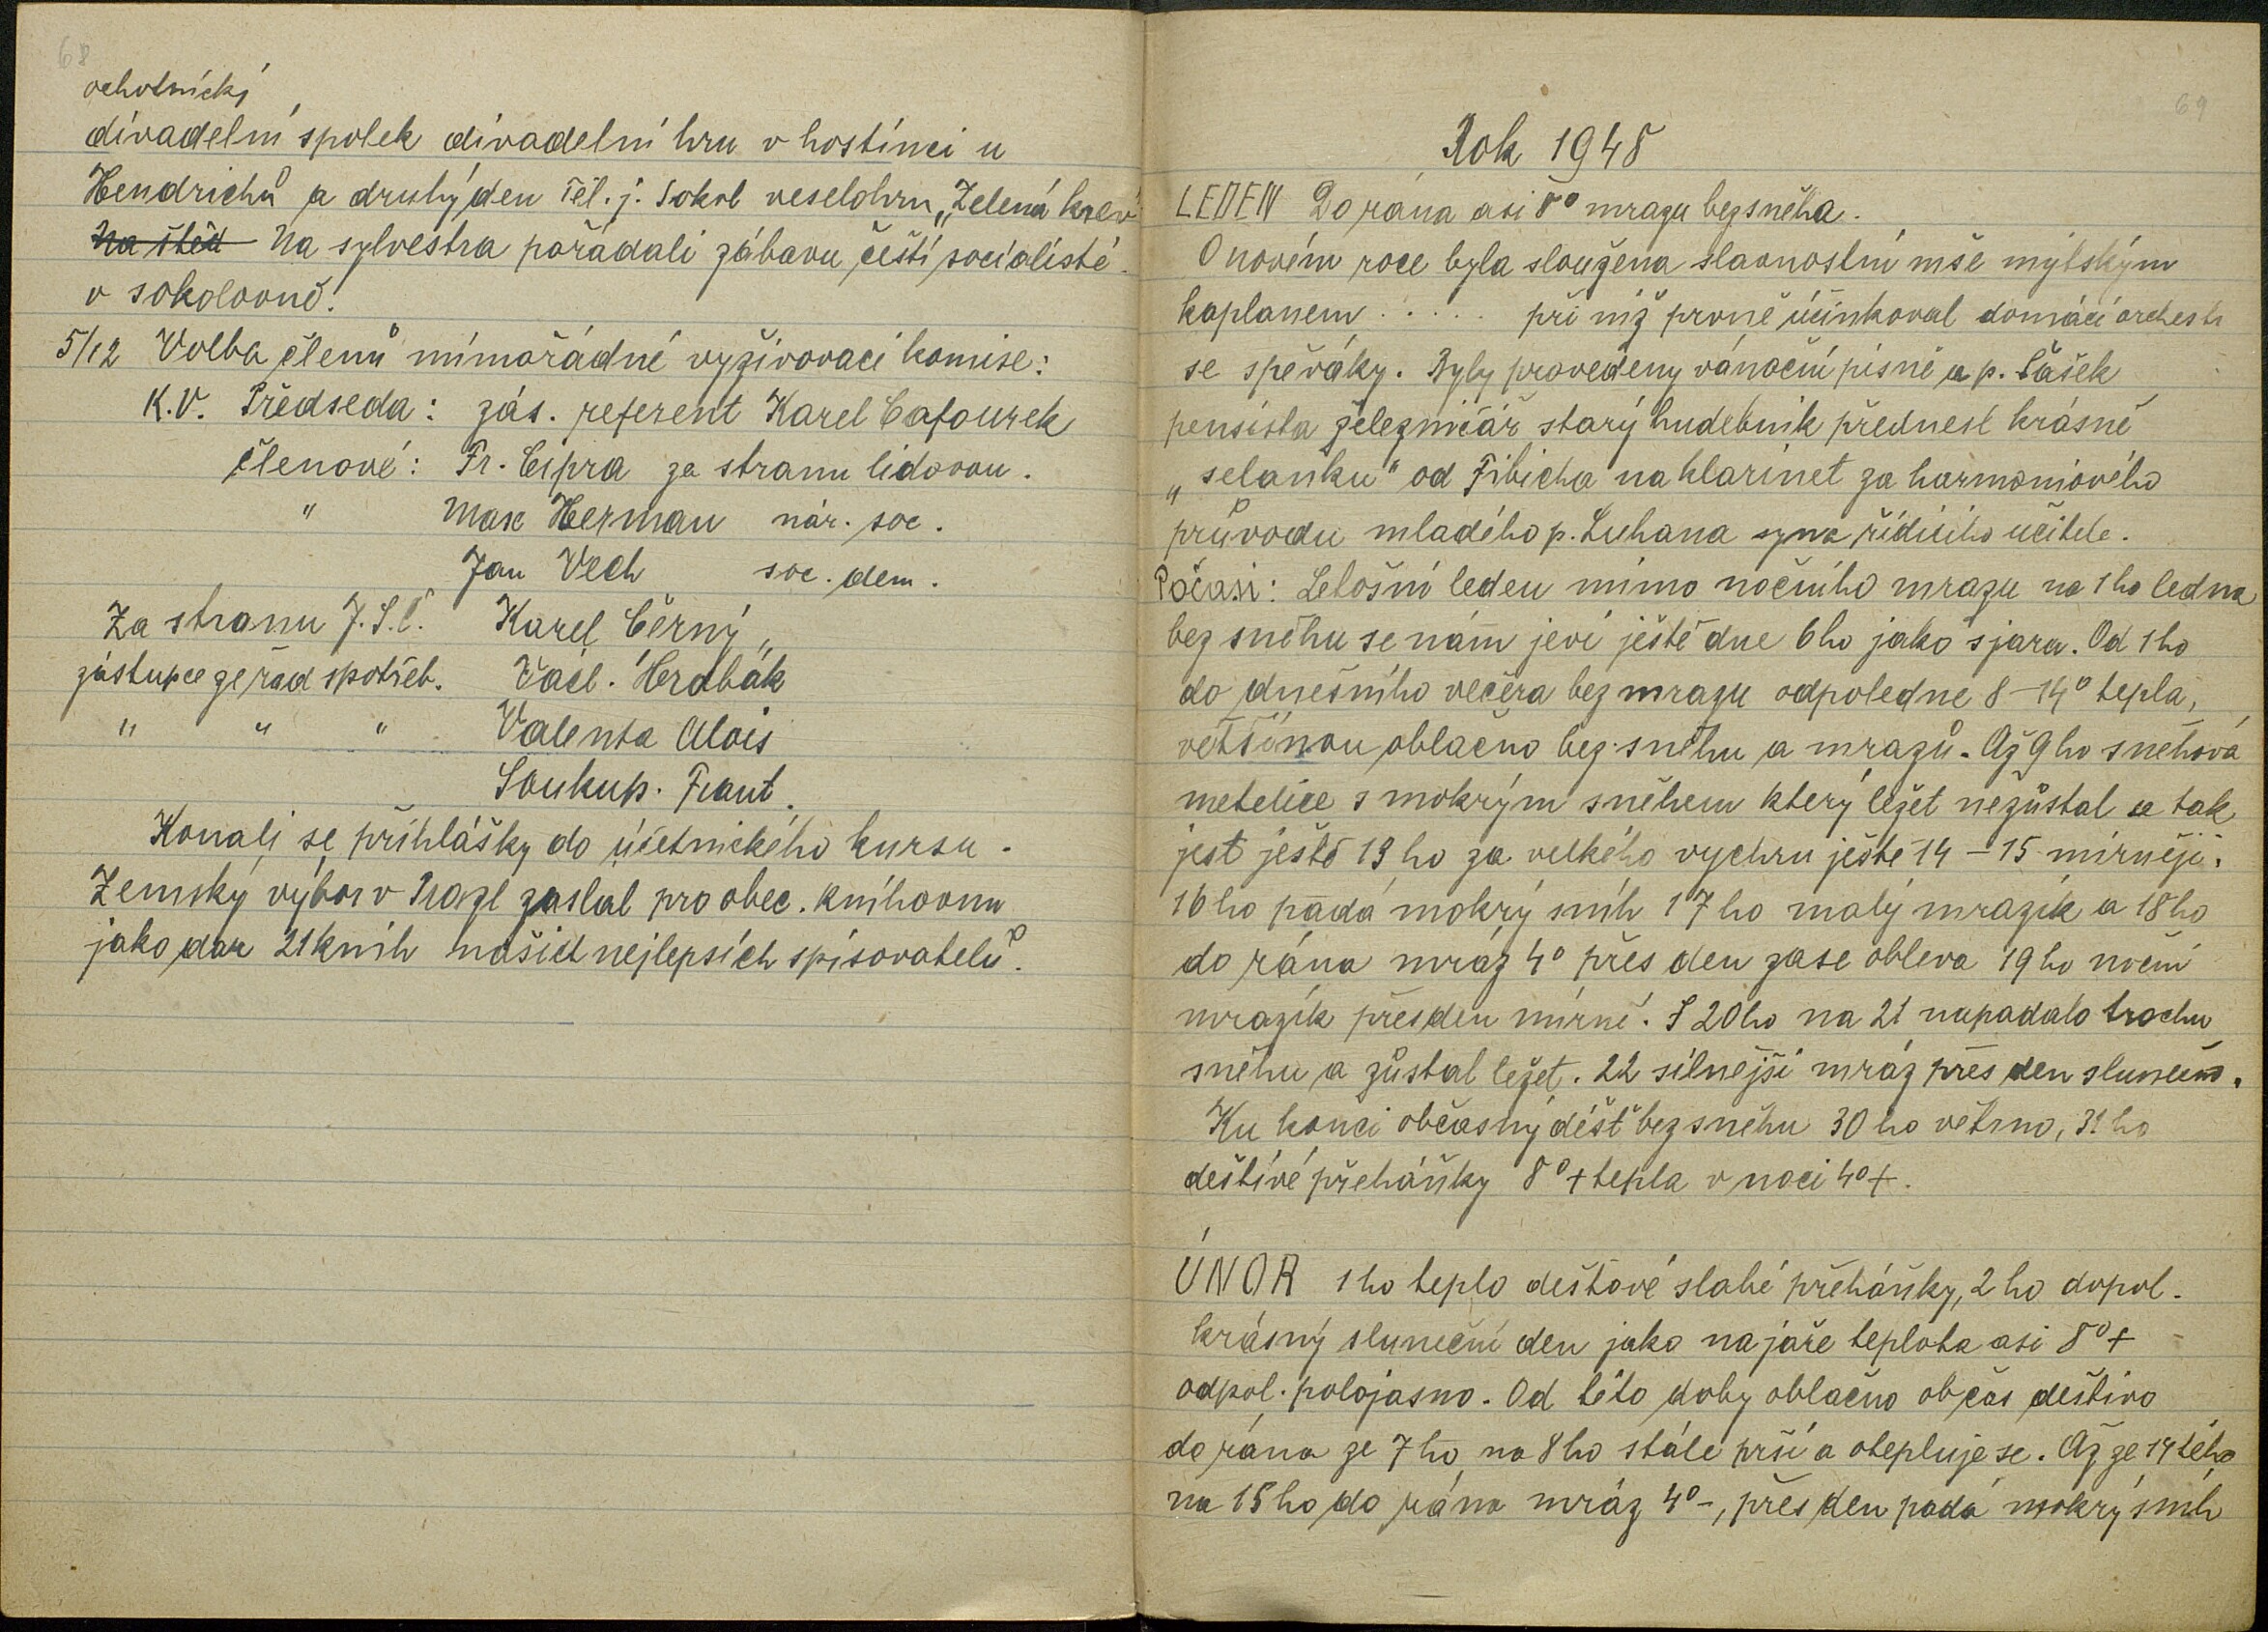 68
ochotnický
divadelní spolek divadelní hru v hostinci u
Hendrichů a druhý den Těl. j. Sokol veselohru „Zelená krev
Na štěd Na sylvestra pořádali zábavu čeští socialisté
v sokolovně.
5/12 Volba členů mimořádné vyživovací komise:
K.V. Předseda: zás. referent Karel Cafourek
členové: Fr. Cipra za stranu lidovou.
" Max Herman nár. soc.
Jan Vech soc. dem.
Za stranu J.S.Č. Karel Černý „
zástupce ze řad spotřeb. Václ. Hrdbák
" " " Valenta Alois
Soukup. Frant.
Konali se přihlášky do účetnického kursu.
Zemský výbor v Praze zaslal pro obec. knihovnu
jako dar 21 knih našich nejlepsích spisovatelů.
69
Rok 1948
LEDEN Do rána asi 8° mrazu bez sněha.
O novém roce byla sloužena slavnostní mše mýtským
kaplanem . . . . . při níž prvně účinkoval domácí orchestr
se spěváky. Byly provedeny vánoční písně a p. Šašek
pensista železničář starý hudebník přednesl krásně
„selanku" od Fibicha na klarinet za harmoniového
průvodu mladého p. Luhana syna řídícího učitele.
Počasí: Letošní leden mimo nočního mrazu na 1ho ledna
bez sněhu se nám jeví ještě dne 6ho jako s jara. Od 1ho
do dnešního večera bez mrazu odpoledne 8-14° tepla,
většinou oblačno bez sněhu a mrazů. Až 9ho sněhová
metelice s mokrým sněhem který ležet nezůstal a tak
jest ještě 13ho za velkého vychru ještě 14-15 mírněji.
16ho padá mokrý sníh 17ho malý mrazík a 18ho
do rána mráz 4° přes den zase obleva 19ho noční
mrazík přes den mírně. S 20ho na 21 napadalo trochu
sněhu a zůstal ležet. 22 silnější mráz přes den slunečno.
Ku konci občasný déšť bez sněhu 30ho větrno, 31ho
deštivé přeháňky 8°+ tepla v noci 4°+.
ÚNOR 1ho teplo dešťové slabé přeháňky, 2ho dopol.
krásný sluneční den jako na jaře teplota asi 8°+
odpol. polojasno. Od této doby oblačno občas deštivo
do rána ze 7ho na 8ho stále prší a otepluje se. Až ze 14tého
na 15ho do rána mráz 4°-, přes den padá mokrý sníh